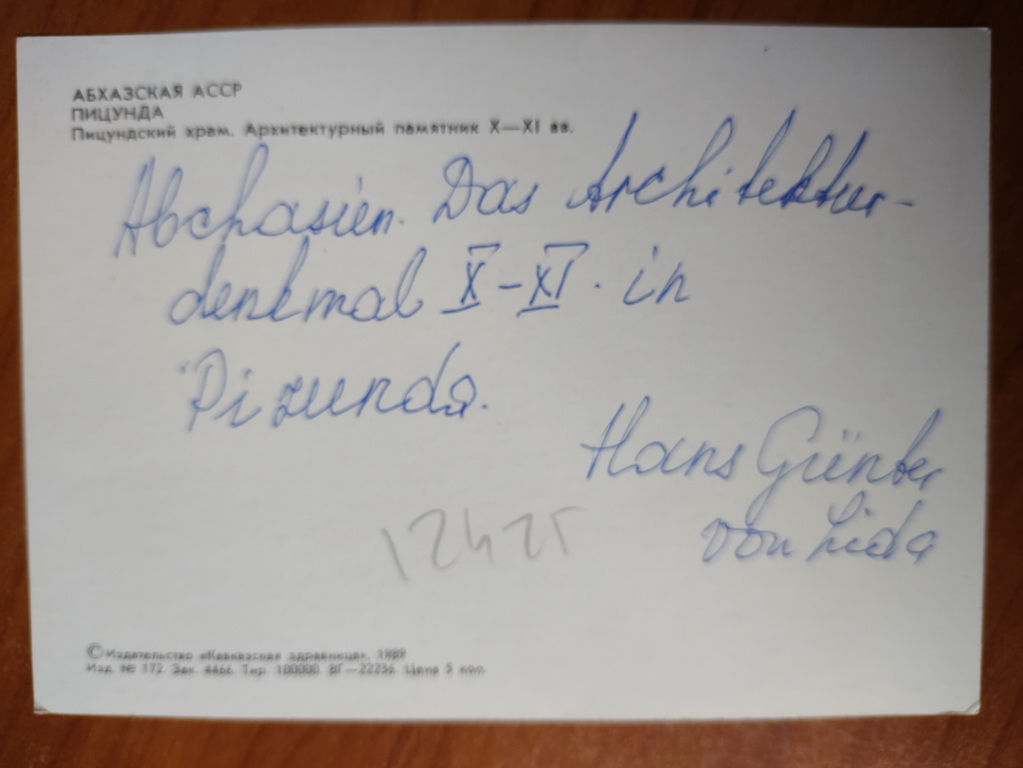 АБХАЗСКАЯ АССР
ПИЦУНДА
Пицундский храм. Архитектурный памятник X—XI вв.
Abchasien. Das Architektur-
denkmal X–XI. in
Pizunda.
Hans Günter
von Lida
© Издательство «Кавказская здравница», 1989
Изд. № 172. Зак. 4466. Тир. 100000. ВГ—22236. Цена 5 коп.